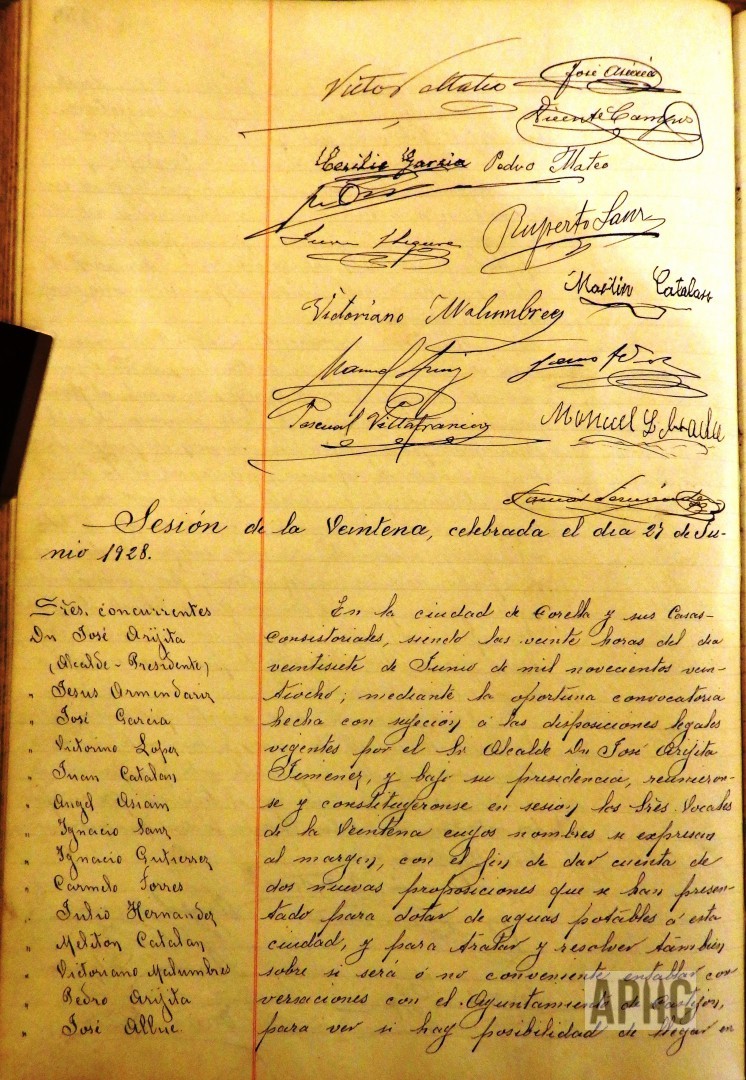 Victor Mateo
José
Vicente Campos
Cecilio Garcia Pedro Mateo
Ruperto Sanz
Martin Catalan
Victoriano Malumbres
Manuel
Pascual Villafranca
Manuel
Sesión de la Veintena, celebrada el dia 27 de Ju-
nio 1928.
Srēs. concurrentes
Dn José Arijita
(Alcalde-Presidente)
" Jesus Armendariz
" José Garcia
" Victorino Lopez
" Juan Catalan
" Angel Asiain
" Ignacio Sanz
" Ignacio Gutierrez
" Carmelo Torres
" Julio Hernandez
" Meliton Catalan
" Victoriano Malumbres
" Pedro Arijita
" José
En la ciudad de Corella y sus Casas-
Consistoriales, siendo las veinte horas del dia
veintisiete de Junio de mil novecientos vein-
tiocho; mediante la oportuna convocatoria
hecha con sujeción á las disposiciones legales
vigentes por el Sr Alcalde Dn José Arijita
Jimenez, y bajo su presidencia, reunieron-
se y constituyeronse en sesion los Srēs. Vocales
de la Veintena cuyos nombres se expresan
al margen, con el fin de dar cuenta de
dos nuevas proposiciones que se han presen-
tado para dotar de aguas potables á esta
ciudad, y para tratar y resolver tambien
sobre si será ó no conveniente entablar con
versaciones con el Ayuntamiento de Castejon,
para ver si hay posibilidad de llegar en
APHC